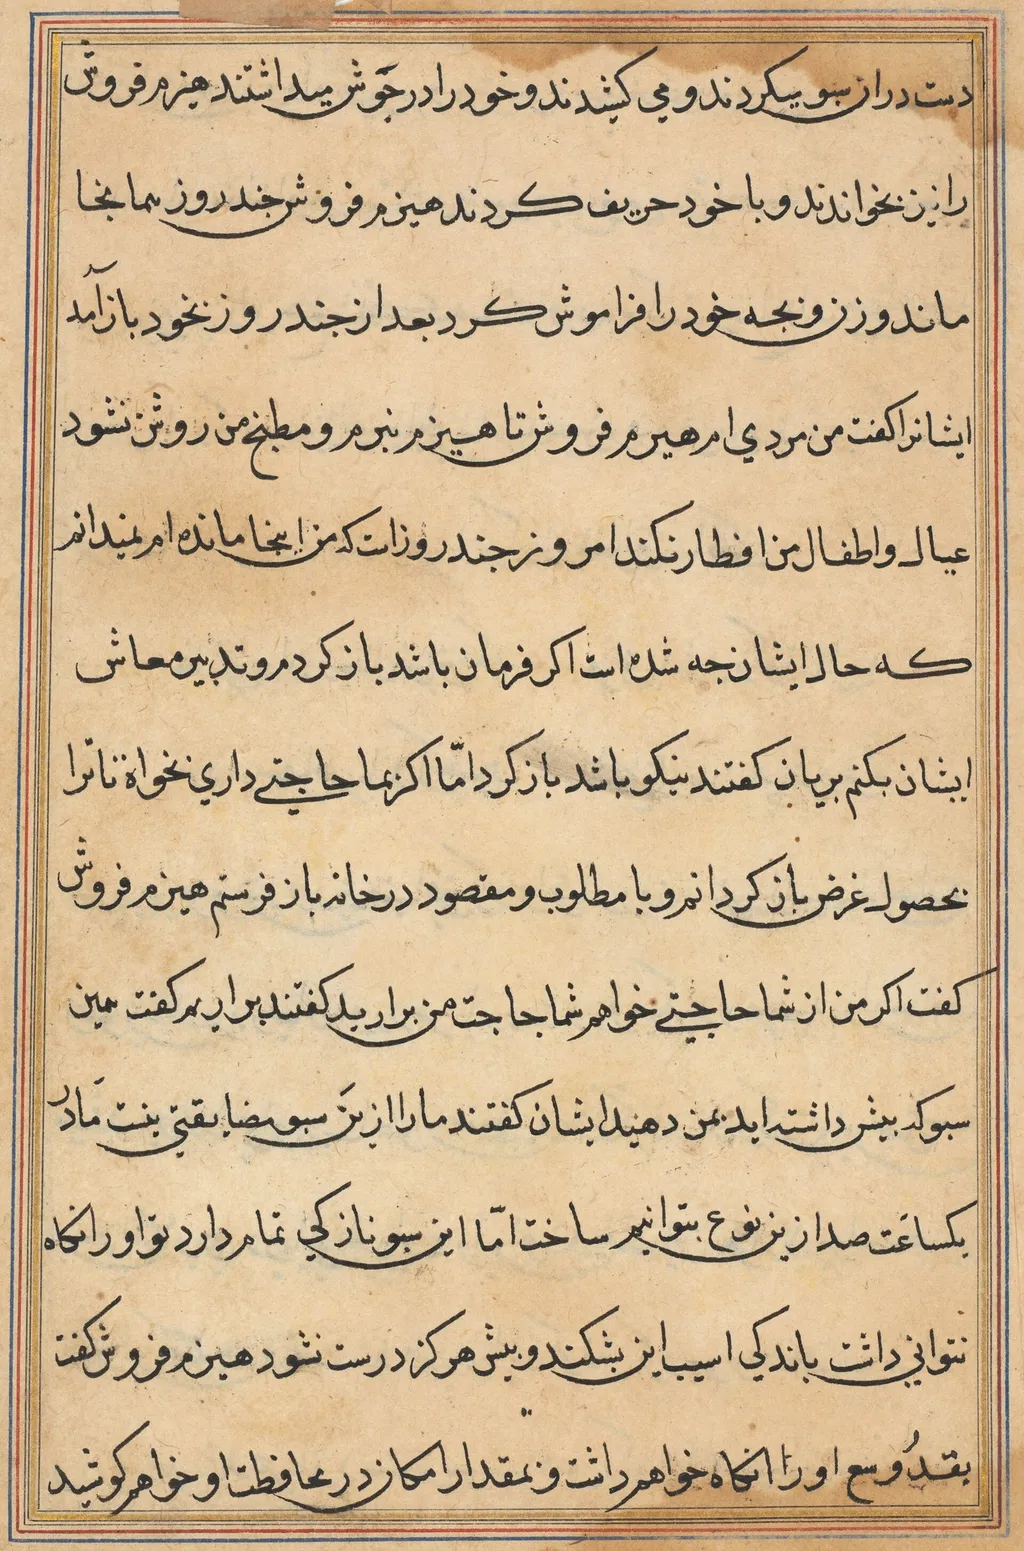 دست دران سبو میکردند و می کشیدند و خود را در جَوش میداشتند هیزم فروش
را نیز بخواندند و با خود حریف کردند هیزم فروش جند روز همانجا
ماند و زن و بجه خود را فراموش کرد بعد از جند روز بخود باز آمد
ایشانرا کفت من مردي ام هیزم فروش تا هیزم نبرم و مطبخ من روشن نشود
عیال و اطفال من افطار نکنند امروز جند روز است که من اینجا مانده ام نمیدانم
که حال ایشان جه شده است اکر فرمان باشد باز کردم و تدبیر معاش
ایشان بکنم بریان کفتند نیکو باشد باز کرد امّا اکر بما حاجتے داري بخواه تا ترا
بحصول غرض باز کردانم و با مطلوب و مقصود در خانه باز فرستم هیزم فروش
کفت اکر من از شما حاجتے خواهم شما حاجت من برارید کفتند براریم کفت همین
سبو که بیش داشته اید بمن دهید ایشان کفتند ما را ازین سبو مضایقتی نیست مَا در
یکساعَت صد ازین نوع بتوانیم ساخت امّا این سبو نازکي تمام دارد تو او را نکاه
نتوانی داشت باندکي اسیب این بشکند و بیش هرکز درست نشود هیزم فروش کفت
بقدُر وسع او را نکاه خواهم داشت و بمقدار امکان در محافظت او خواهم کوشید